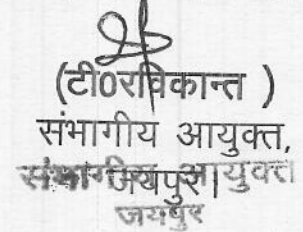 (टी0रविकान्त )
संभागीय आयुक्त,
जयपुर।
संभागीय आयुक्त
जयपुर